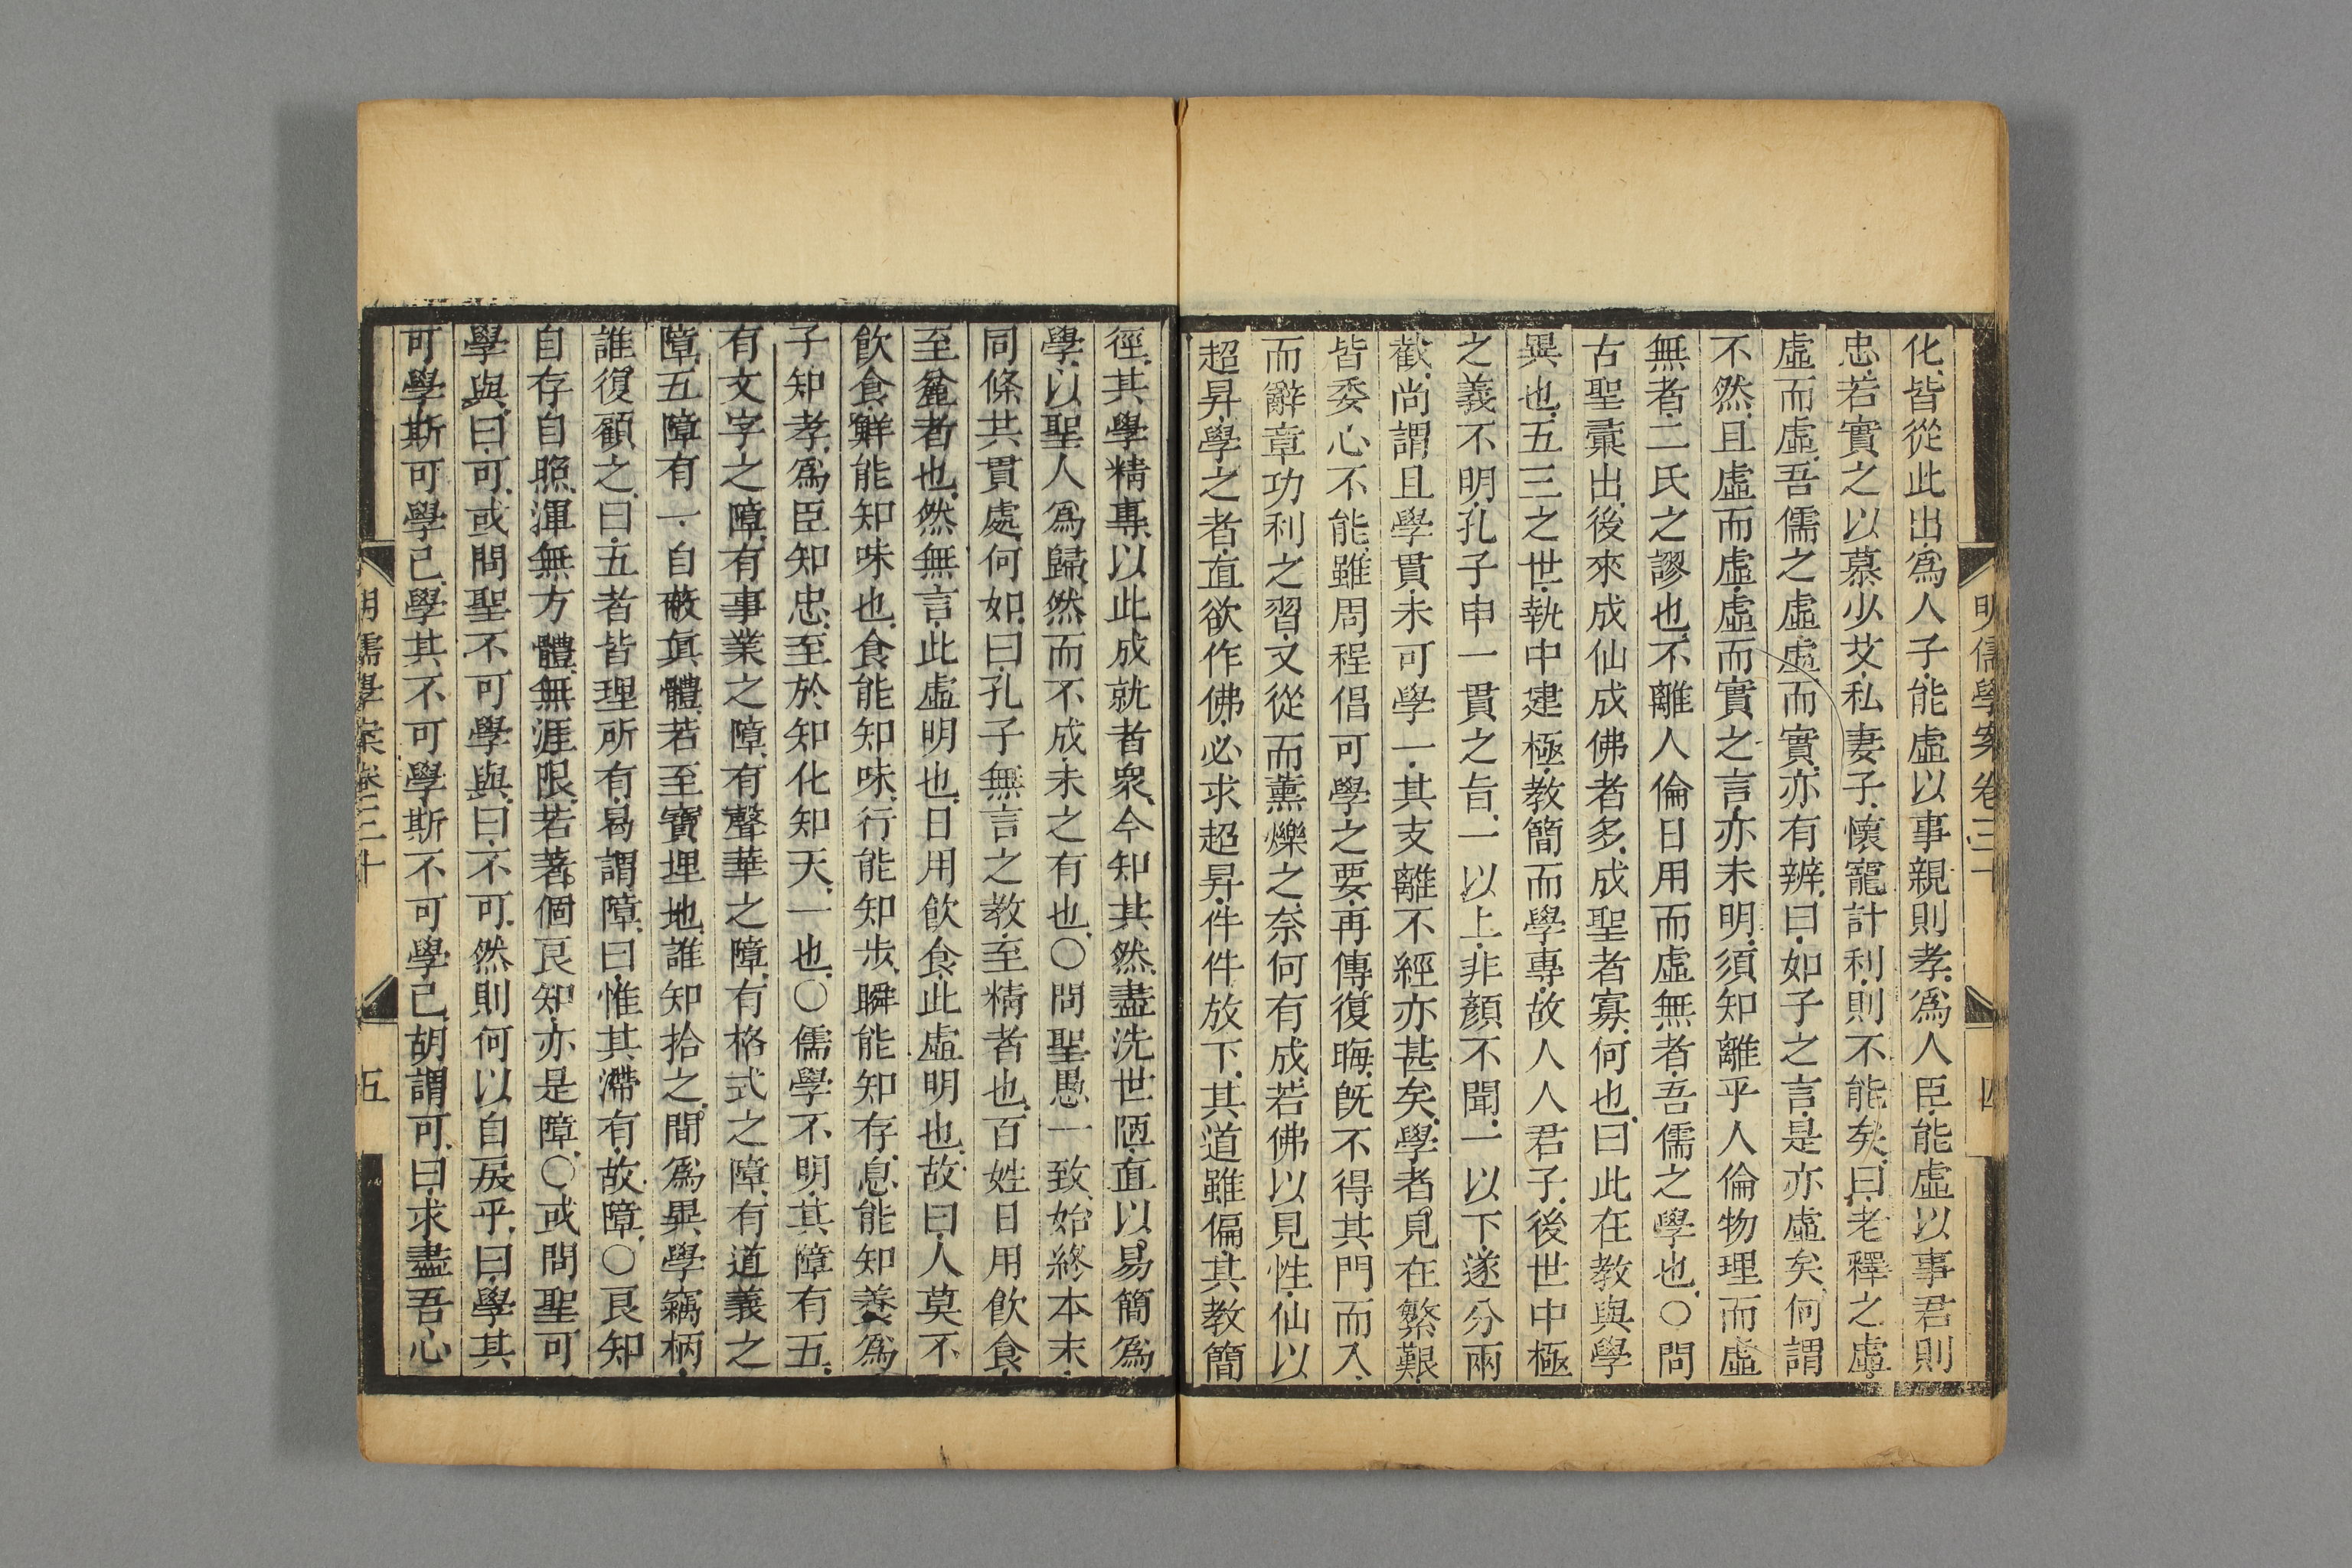 明儒學案卷三十 四
化、皆從此出、爲人子、能虛以事親則孝、爲人臣、能虛以事君則
忠、若實之以慕少艾、私妻子、懷寵計利、則不能矣、曰、老釋之虛、
虛而虛、吾儒之虛、虛而實、亦有辨、曰、如子之言、是亦虛矣、何謂
不然、且虛而虛、虛而實之言、亦未明、須知離乎人倫物理而虛
無者、二氏之謬也、不離人倫日用而虛無者、吾儒之學也、○問
古聖彙出、後來成仙成佛者多、成聖者寡、何也、曰此在教與學
異也、五三之世、執中建極、教簡而學專、故人人君子、後世中極
之義不明、孔子申一貫之旨、一以上、非顏不聞、一以下、遂分兩
截、尚謂且學貫、未可學一、其支離不經亦甚矣、學者見在繁艱、
皆委心不能、雖周程倡可學之要、再傳復晦、旣不得其門而入、
而辭章功利之習、又從而薰爍之、奈何有成、若佛以見性、仙以
超昇、學之者、直欲作佛、必求超昇、件件放下、其道雖偏、其教簡
徑、其學精專、以此成就者衆、今知其然、盡洗世陋、直以易簡爲
學、以聖人爲歸、然而不成、未之有也、○問聖愚一致、始終本末、
同條共貫處、何如、曰、孔子無言之教、至精者也、百姓日用飲食、
至麄者也、然無言、此虛明也、日用飲食、此虛明也、故曰、人莫不
飲食、鮮能知味也、食能知味、行能知步、瞬能知存、息能知養、爲
子知孝、爲臣知忠、至於知化知天、一也、○儒學不明、其障有五、
有文字之障、有事業之障、有聲華之障、有格式之障、有道義之
障、五障有一、自蔽眞體、若至寶埋地、誰知拾之、間爲異學竊柄、
誰復顧之、曰、五者皆理所有、曷謂障、曰、惟其滯有、故障、○良知
自存自照、渾無方體、無涯限、若著個良知、亦是障、○或問聖可
學與、曰、可、或問聖不可學與、曰、不可、然則何以自戾乎、曰、學其
可學、斯可學已、學其不可學、斯不可學已、胡謂可、曰、求盡吾心
明儒學案卷三十 五